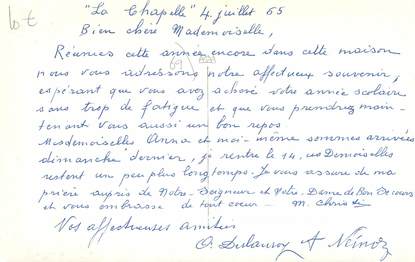 lot
"La Chapelle" 4 juillet 65
Bien chère Mademoiselle,
Réunies cette année encore dans cette maison
nous vous adressons notre affectueux souvenir,
espérant que vous avez achevé votre année scolaire
sans trop de fatigue et que vous prendrez main-
tenant vous aussi un bon repos
Mesdemoiselles Anna et moi-même sommes arrivées
dimanche dernier, je rentre le 14, ces Demoiselles
restent un peu plus longtemps. Je vous assure de ma
prière auprès de Notre-Seigneur et Notre-Dame de Bon Secours
et vous embrasse de tout coeur - M.
Vos affectueuses amitiés